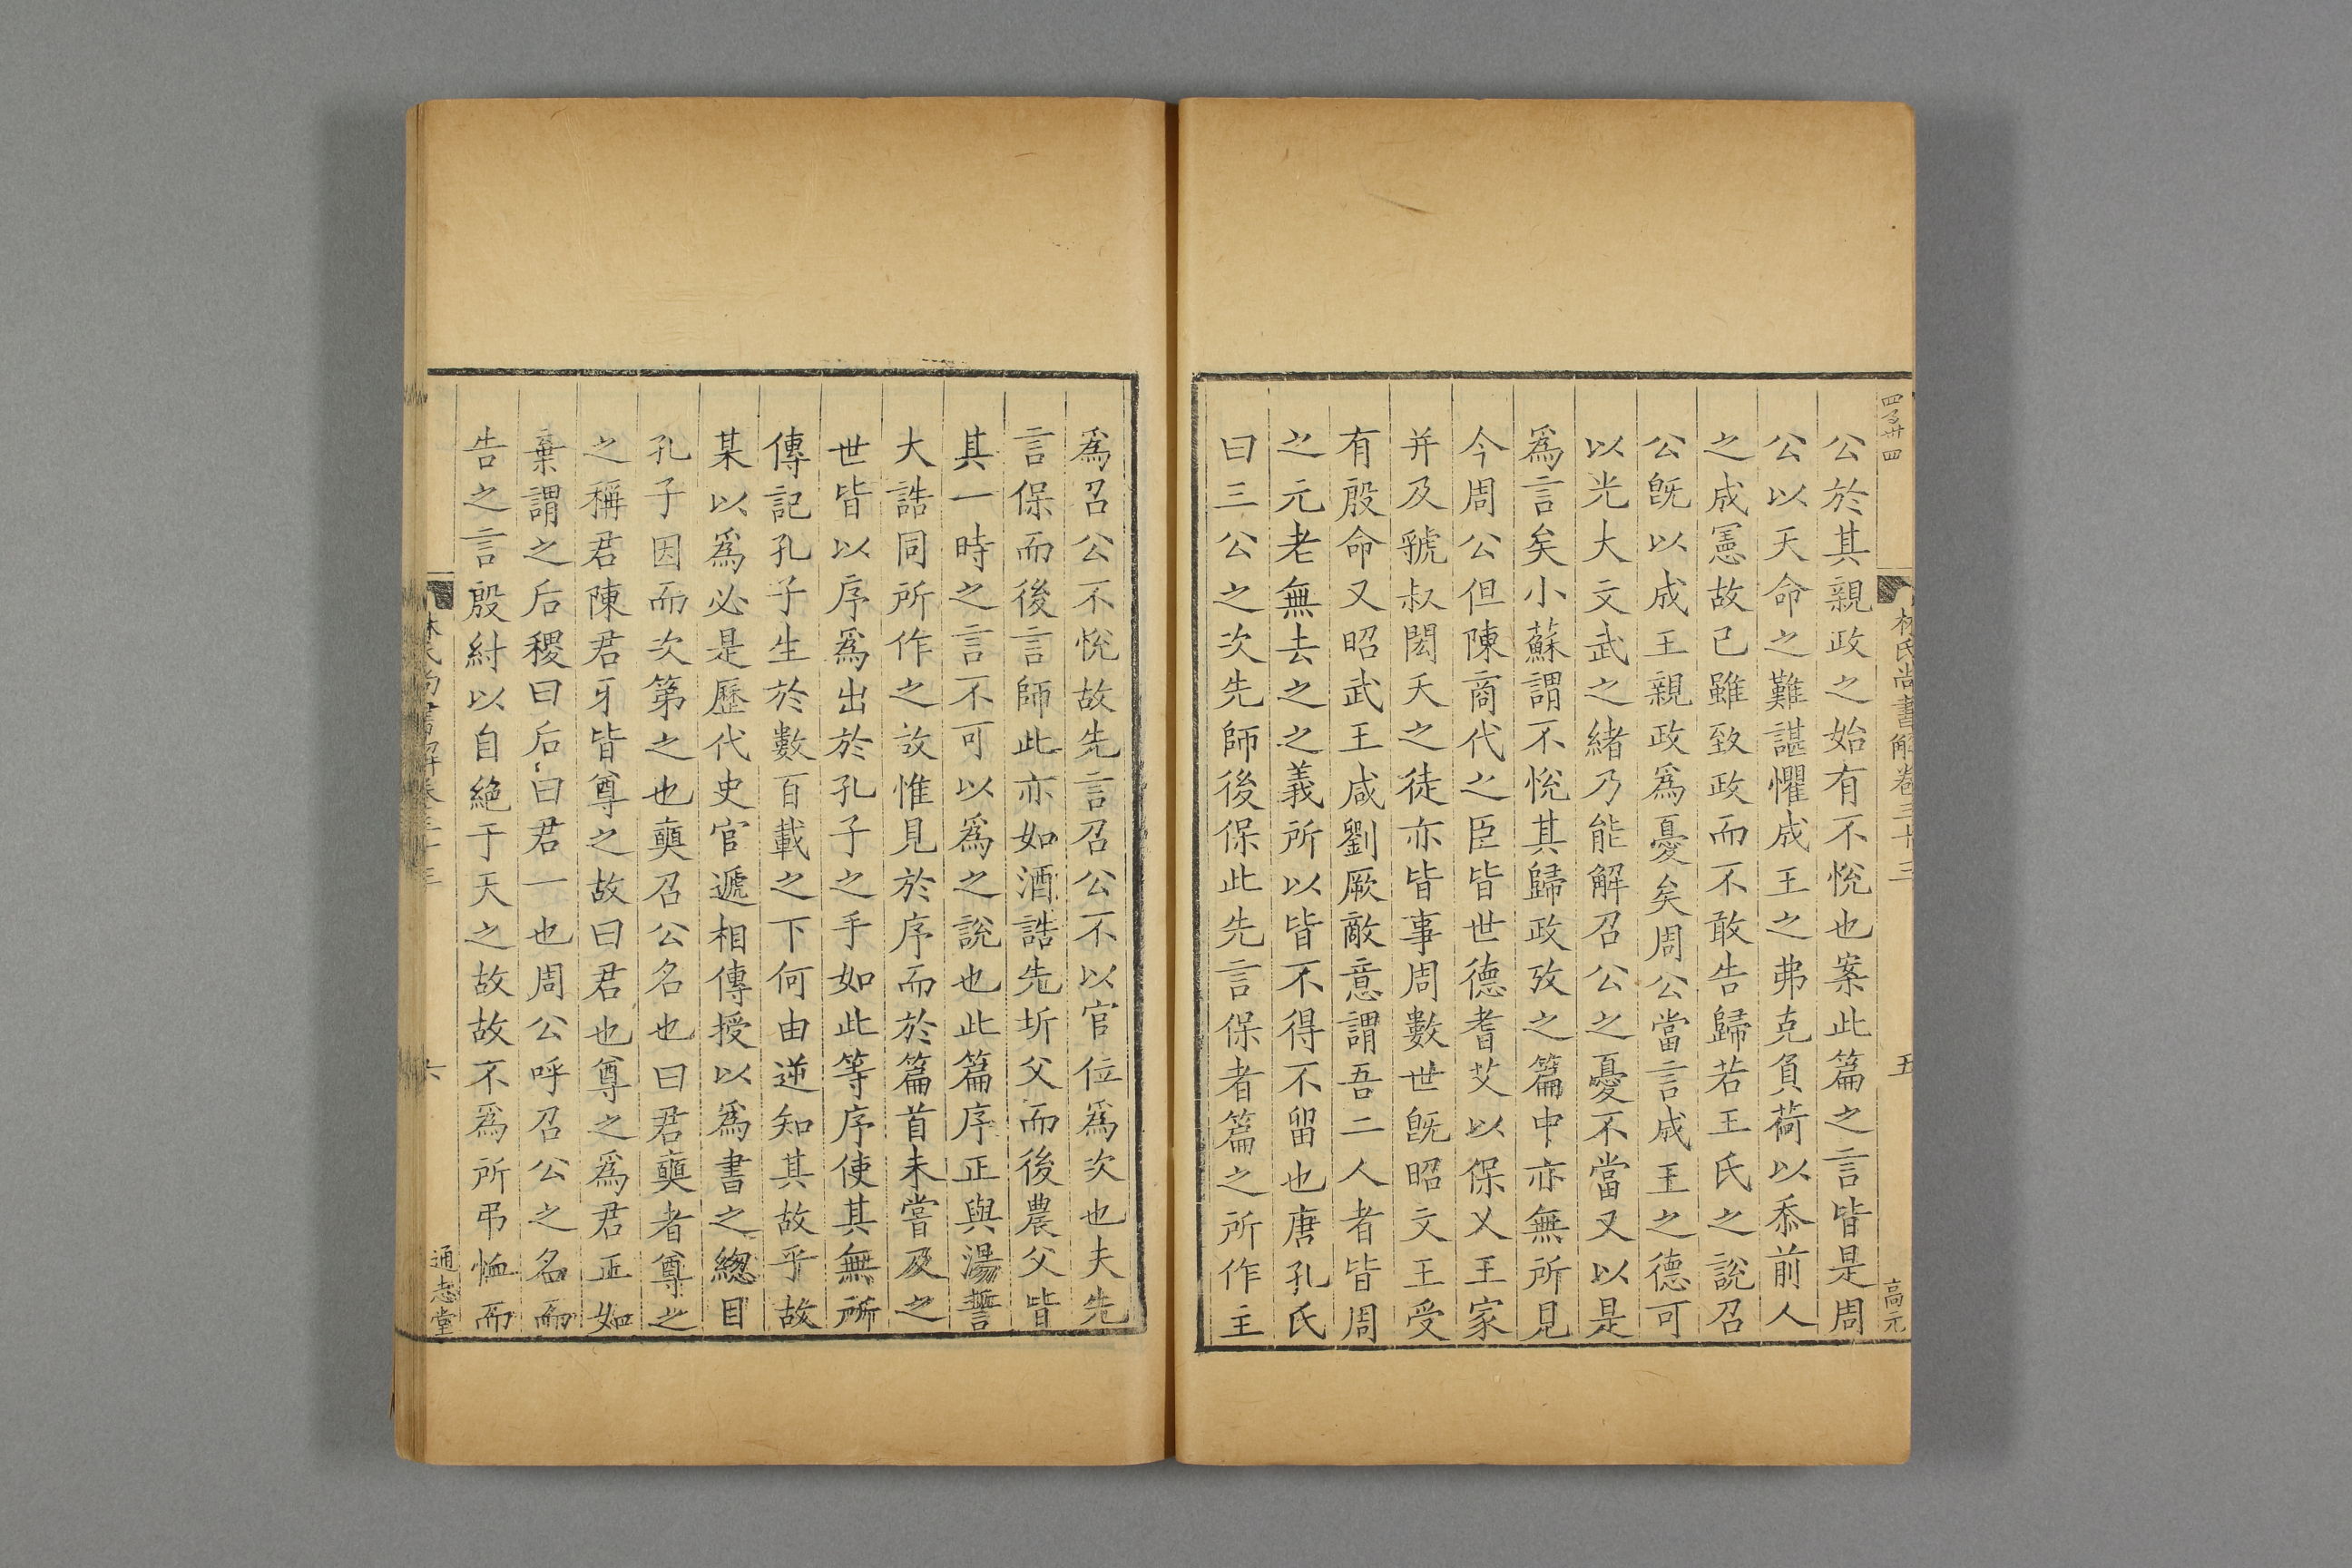 四百廿四
林氏尚書解卷三十三
五
高元
公於其親政之始有不恱也案此篇之言皆是周
公以天命之難諶懼成王之弗克負荷以忝前人
之成憲故已雖致政而不敢告歸若王氏之說召
公旣以成王親政爲憂矣周公當言成王之德可
以光大文武之緒乃能解召公之憂不當又以是
爲言矣小蘇謂不恱其歸政攷之篇中亦無所見
今周公但陳商代之臣皆世德耆艾以保乂王家
并及虢叔閎夭之徒亦皆事周數世旣昭文王受
有殷命又昭武王咸劉厥敵意謂吾二人者皆周
之元老無去之之義所以皆不得不留也唐孔氏
曰三公之次先師後保此先言保者篇之所作主
爲召公不恱故先言召公不以官位爲次也夫先
言保而後言師此亦如酒誥先圻父而後農父皆
其一時之言不可以爲之說也此篇序正與湯誓
大誥同所作之故惟見於序而於篇首未嘗及之
世皆以序爲出於孔子之手如此等序使其無所
傳記孔子生於數百載之下何由逆知其故乎故
某以爲必是歷代史官遞相傳授以爲書之緫目
孔子因而次第之也奭召公名也曰君奭者尊之
之稱君陳君牙皆尊之故曰君也尊之爲君正如
棄謂之后稷曰后曰君一也周公呼召公之名而
告之言殷紂以自絶于天之故故不爲所弔恤而
林氏尚書解卷三十三
六
通志堂